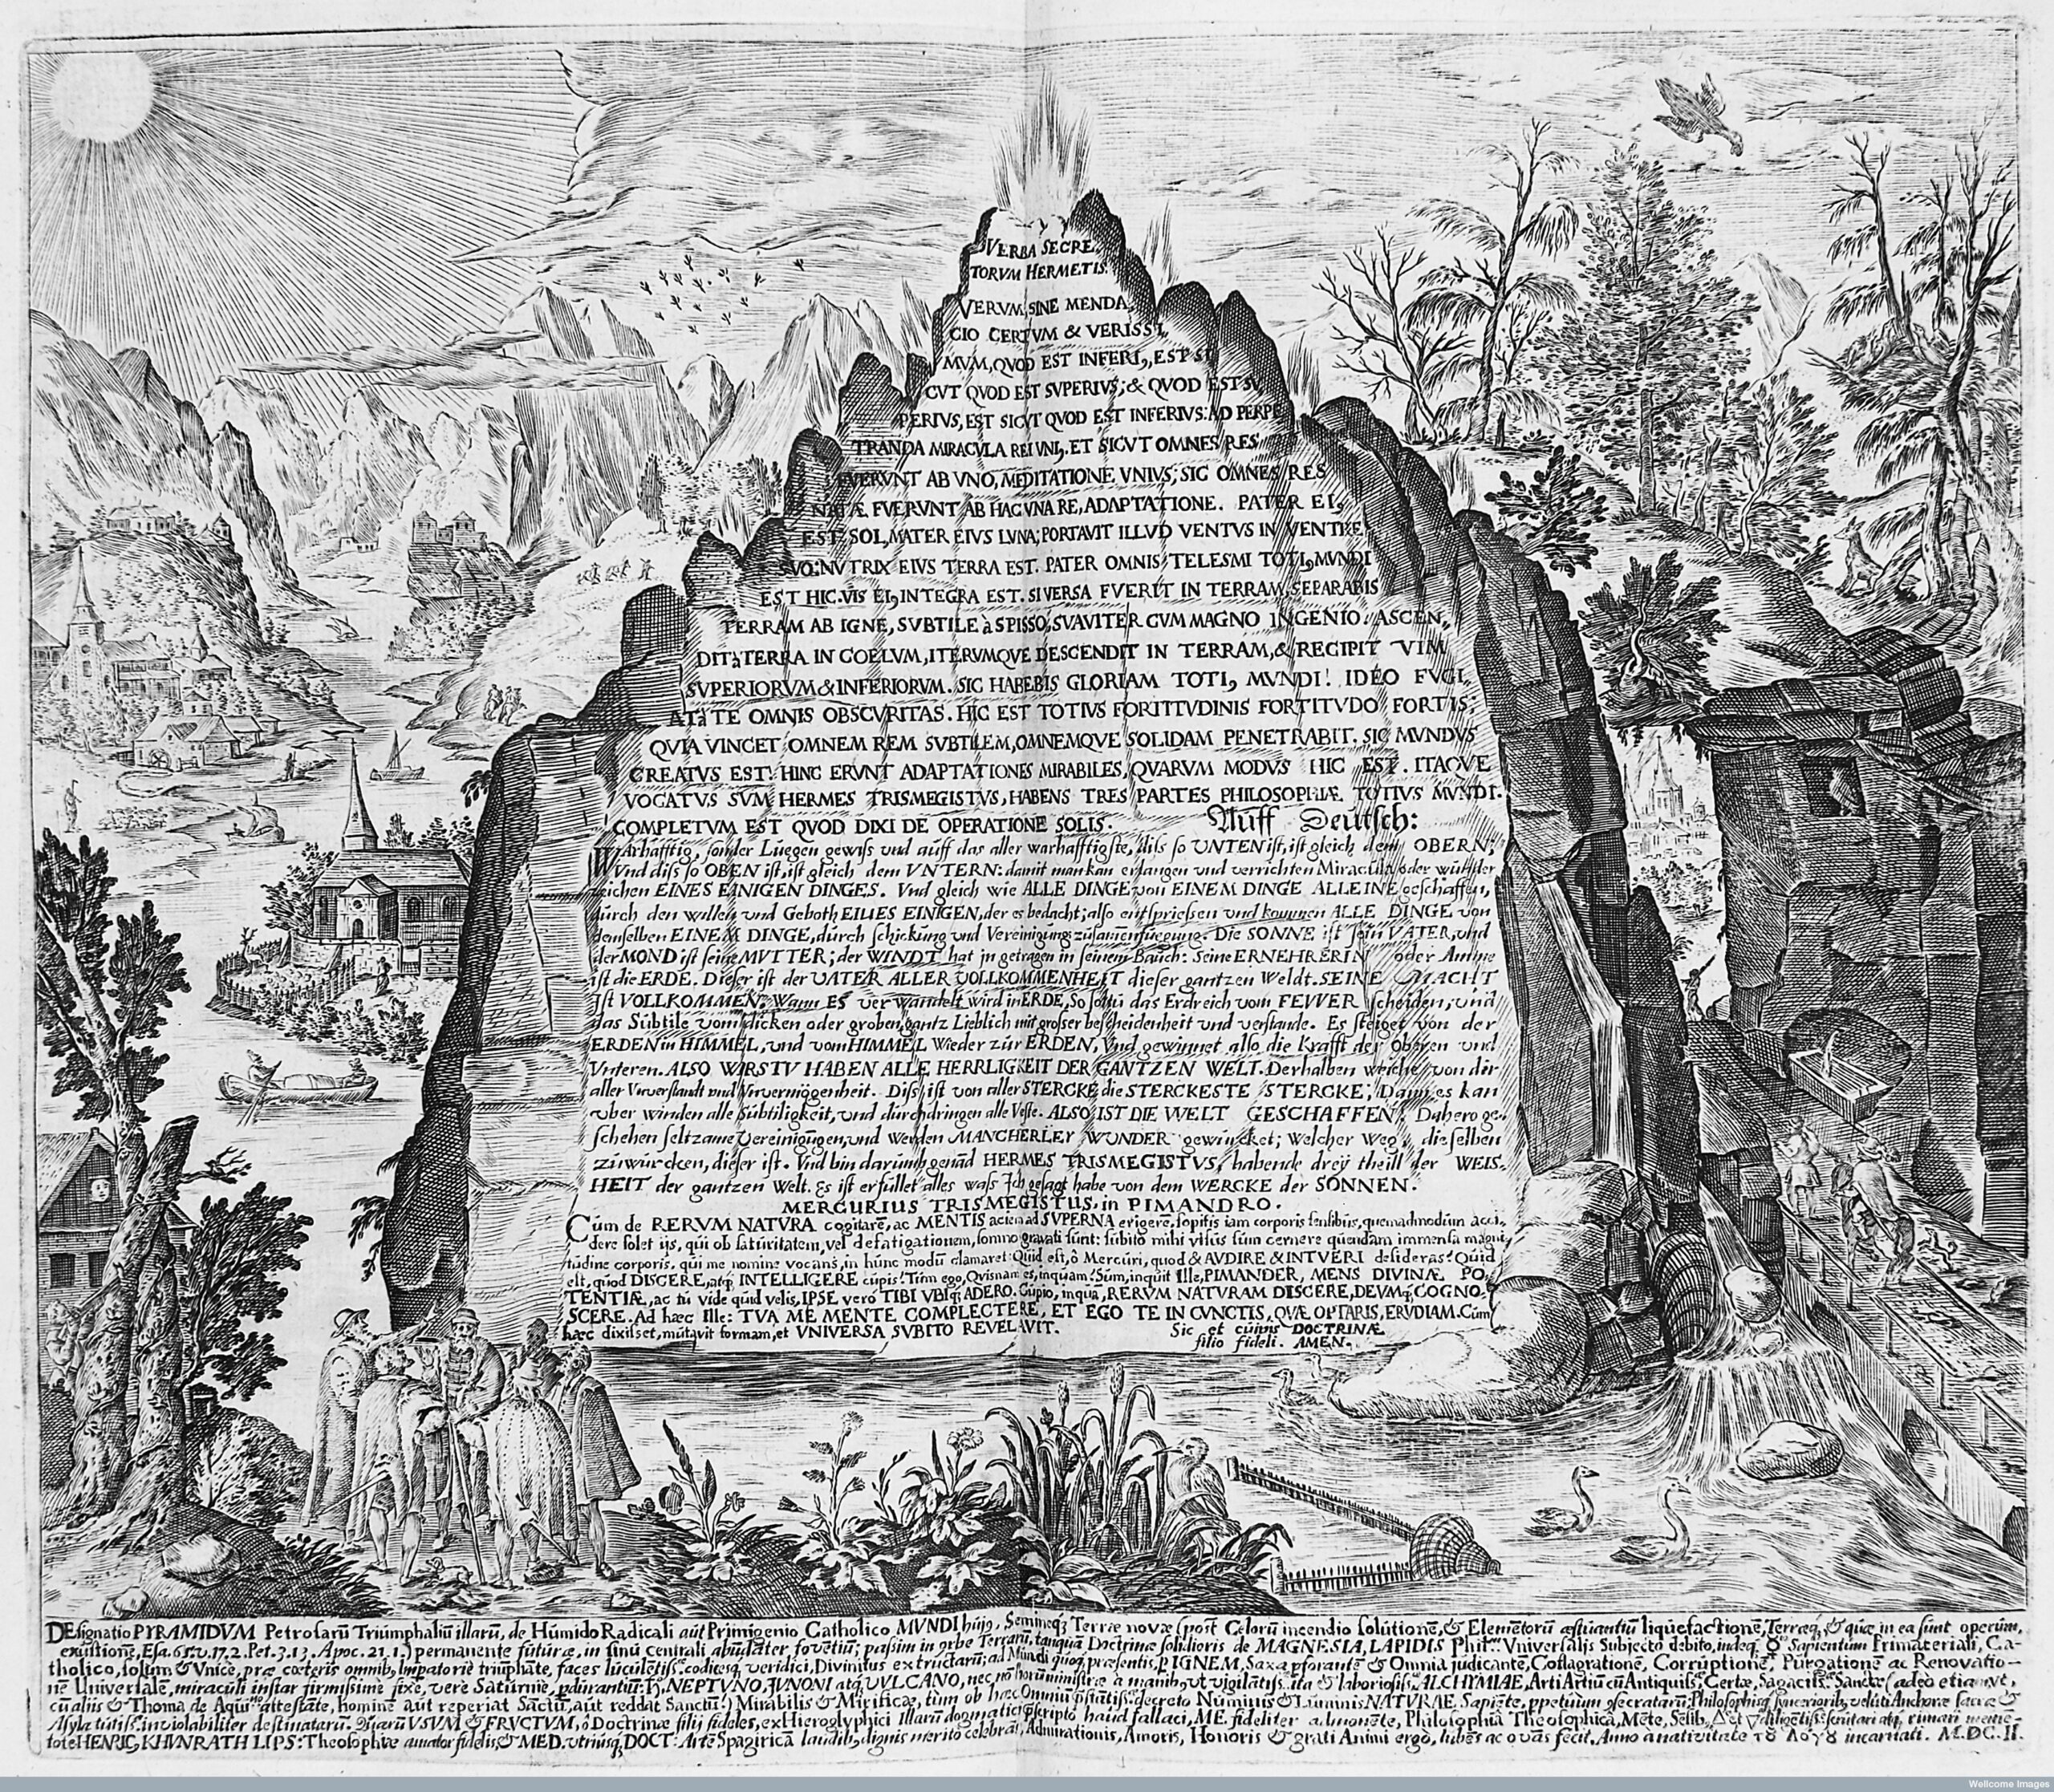 VERBA SECRE
TORVM HERMETIS.
VERVM, SINE MENDA
CIO CERTVM & VERISSI
MVM, QVOD EST INFERI9, EST SI
CVT QVOD EST SVPERIVS; & QVOD EST SV
PERIVS, EST SICVT QVOD EST INFERIVS: AD PERPE
TRANDA MIRACVLA REI UNI9. ET SICVT OMNES RES
FVERVNT AB VNO, MEDITATIONE VNIVS; SIC OMNES RES
NATÆ FVERVNT AB HAC VNA RE, ADAPTATIONE. PATER EI9
EST SOL, MATER EIVS LVNA; PORTAVIT ILLVD VENTVS IN VENTRE
SVO: NVTRIX EIVS TERRA EST. PATER OMNIS TELESMI TOTI9 MVNDI
EST HIC. VIS EI9 INTEGRA EST. SI VERSA FVERIT IN TERRAM, SEPARABIS
TERRAM AB IGNE, SVBTILE à SPISSO, SVAVITER CVM MAGNO INGENIO. ASCEN,
DIT à TERRA IN COELVM, ITERVMQVE DESCENDIT IN TERRAM, & RECIPIT VIM
SVPERIORVM & INFERIORVM. SIC HABEBIS GLORIAM TOTI9 MVNDI! IDEO FVGI,
AT à TE OMNIS OBSCVRITAS. HIC EST TOTIVS FORTITVDINIS FORTITVDO FORTIS;
QVIA VINCET OMNEM REM SVBTILEM, OMNEMQVE SOLIDAM PENETRABIT. SIC MVNDVS
CREATVS EST. HINC ERVNT ADAPTATIONES MIRABILES, QVARVM MODVS HIC EST. ITAQVE
VOCATVS SVM HERMES TRISMEGISTVS, HABENS TRES PARTES PHILOSOPHIÆ TOTIVS MVNDI.
COMPLETVM EST QVOD DIXI DE OPERATIONE SOLIS. Auff Deutsch:
WArhafftig, sonder Luegen gewiss vnd auff das aller warhafftigste, diss so UNTEN ist, ist gleich dem OBERN;
Vnd diss so OBEN ist, ist gleich dem VNTERN: damit man kan erlangen und verrichten Miracula oder wunder
zeichen EINES EINIGEN DINGES. Vnd gleich wie ALLE DINGE von EINEM DINGE ALLEINE geschaffen,
durch den willen vnd Geboth EINES EINIGEN, der es bedacht; also entspriessen vnd kommen ALLE DINGE von
demselben EINEM DINGE, durch schickung vnd Vereinigung zusamenfuegung. Die SONNE ist sein VATER, vnd
der MOND ist seine MVTTER; der WINDT hat jn getragen in seinem Bauch: Seine ERNEHRERIN oder Amme
ist die ERDE. Dieser ist der VATER ALLER VOLLKOMMENHEIT dieser gantzen Weldt. SEINE MACHT
Ist VOLLKOMMEN. Wann ES verwandelt wird in ERDE, So soltu das Erdreich vom FEWER scheiden, vnd
das Subtile vom dicken oder groben, gantz Lieblich mit grosser bescheidenheit vnd verstande. Es steiget von der
ERDEN in HIMMEL, vnd vom HIMMEL Wieder zur ERDEN, Vnd gewinnet also die Krafft der Oberen vnd
Vnteren. ALSO WIRSTV HABEN ALLE HERRLIGKEIT DER GANTZEN WELT. Derhalben weiche von dir
aller Vnverstandt vnd Vnvermögenheit. Diss ist von aller STERCKE die STERCKESTE STERCKE; Dann es kan
vber winden alle Subtiligkeit, vnd durchdringen alle Veste. ALSO IST DIE WELT GESCHAFFEN. Dahero ge,
schehen seltzame Vereinigungen, vnd werden MANCHERLEY WUNDER gewürcket; welcher Weg, dieselben
zuwürcken, dieser ist. Vnd bin darumb genād HERMES TRISMEGISTVS, habende drey theill der WEIS,
HEIT der gantzen Welt. Es ist erfüllet alles wass Ich gesagt habe von dem WERCKE der SONNEN.
MERCURIUS TRISMEGISTUS, in PIMANDRO.
Cum de RERVM NATURA cogitarē, ac MENTIS aciem ad SUPERNA erigere, sopitis iam corporis sensibus, quemadmodum acci,
dere solet ijs, qui ob saturitatem, vel defatigationem, somno gravati sunt: subito mihi visus sum cernere quendam immensa magni,
tudine corporis, qui me nomine vocans, in hunc modū clamaret: Quid est, ô Mercuri, quod & AVDIRE & INTVERI desideras? Quid
est, quod DISCERE, atq INTELLIGERE cupis? Tum ego, Quisnam es, inquam? Sum, inquit Ille, PIMANDER, MENS DIVINÆ PO,
TENTIÆ, ac tu vide quid velis, IPSE vero TIBI UBIQ; ADERO. Cupio, inquā, RERUM NATURAM DISCERE, DEVMq; COGNO,
SCERE. Ad hæc Ille: TVA ME MENTE COMPLECTERE, ET EGO TE IN CVNCTIS, QVÆ OPTARIS, ERUDIAM. Cum
hæc dixisset, mutavit formam, et UNIVERSA SVBITO REVELAVIT. Sic et cuivis DOCTRINÆ
filio fideli. AMEN.
DEsignatio PYRAMIDVM Petrosarū Triumphaliū illarū, de Humido Radicali aut Primigenio Catholico MVNDI hui9, Semineq; Terræ novæ (post Cælorū incendio solutionē, & Elementorū æstuantiū liquefactionē, Terræq, & quæ in ea sunt operum,
exustionē, Esa. 65. v. 17. 2. Pet. 3. 13. Apoc. 21. 1.) permanente futuræ, in sinu centrali abūdāter fovētiū; passim in orbe Terrarū, tanquā Doctrinæ solidioris de MAGNESIA, LAPIDIS Phil. Vniversalis Subjecto debito, indeq. Sapientum Primateriali, Ca-
tholico, solum & Vnice, præ cæteris omnib9 Impatorie triūphāte, faces luculētiss. codicesq veridici, Divinitus extructarū; ad Mundi quoq præsentis, p IGNEM, Saxa pforantē & Omnia judicantē, Coflagrationē, Corruptionē, Purgationē ac Renovatio-
nē Universalē, miraculi instar firmissime fixe, vere Saturnie, pdurantiū: NEPTVNO, JVNONI atq VVLCANO, laboriosiss. ALCHYMIAE, Arti Artiū cū Antiquiss. Certæ, Sagaciss. Sanctæ (adeo etiam vt,
cū aliis & Thoma de Aquino attestāte, hominē aut reperiat Sāctū, aut reddat Sanctū!) Mirabilis & Mirificæ, tum ob hæc Omni decreto Numinis & Luminis NATURAE. Sapiēte, ppetuum osecratarū; Philosophisq synceriorib, veluti Anchoræ sacræ &
Asyla tutiss. inviolabiliter destinatarū. Quarū VSVM & FRVCTVM, ô Doctrinæ filij fideles, ex Hieroglyphici Illarū dogmatis scripto haud fallaci, ME fideliter admonēte, Philosophiā Theosophicā, Mēte,
tote HENRIC9 KHVNRATH LIPS: Theosophiæ amator fidelis & MED. vtriusq DOCT: Arte Spagiricā laudib9 dignis merito celebrās, Admirationis, Amoris, Honoris & grati Animi ergo, lubēs ac ovās fecit, Anno a nativitate τȣ λογȣ incarnati. M.DC.II.
Wellcome Images